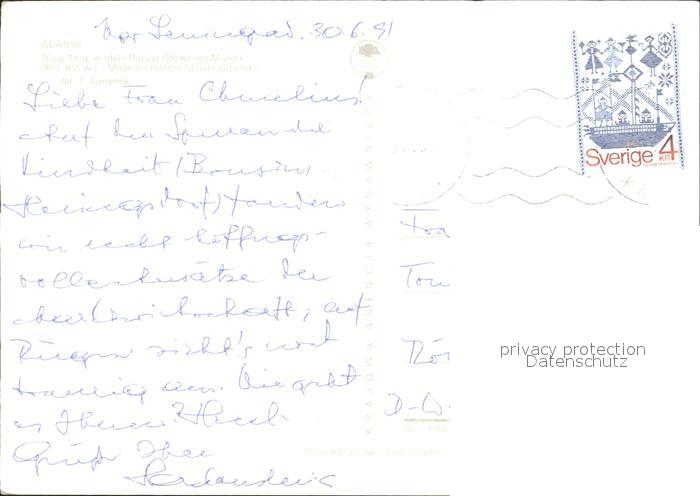 Vor Leningrad, 30.6.91
GDAŃSK
Długi Targ, w głębi Ratusz Głównego Miasta
(XIV-XVI w.) - Muzeum Historii Miasta Gdańska
fot. T. Sumiński
Liebe Frau
auf den Spuren der
Kindheit (Bansin,
Heringsdorf) fanden
wir recht hoffnungs-
volle Ansätze der
Marktwirtschaft; auf
Rügen sieht's noch
traurig aus. Wie geht
es Ihnen? Herzl.
Grüße Ihre
KRAJOWA AGENCJA WYDAWNICZA
Wszelkie prawa zastrzeżone
Sverige 4
KR
Fra
D-W
privacy protection
Datenschutz